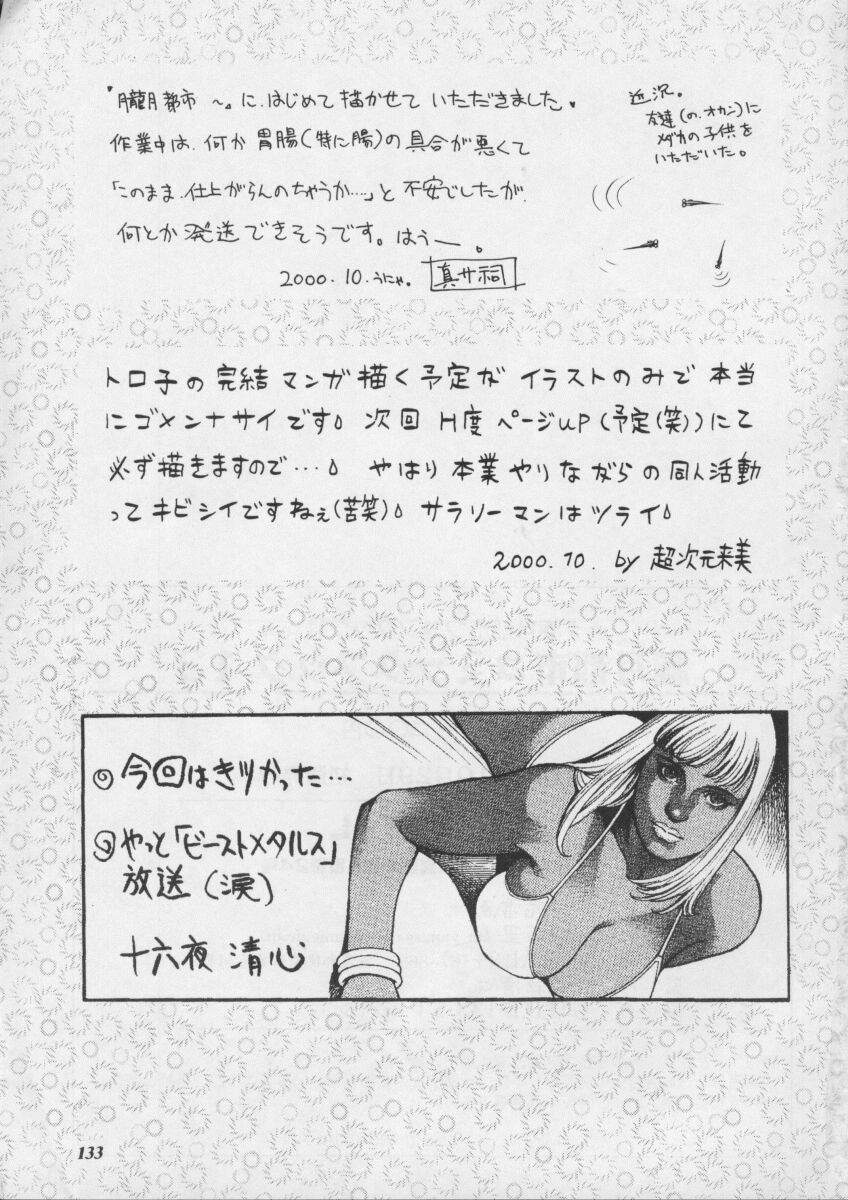 『朧月都市 〜』に、はじめて描かせて いただきました。
作業中は、何か 胃腸(特に腸)の 具合が悪くて
「このまま、仕上がらんのちゃうか…」と 不安でしたが、
何とか 発送 できそうです。はうー。
2000.10.うにゃ。 真サ祠
近況。
友達(の、オカン)に
メダカの子供を
いただいた。
トロ子の 完結 マンガ 描く 予定が イラストのみで 本当
にゴメンナサイです。 次回 H度 ページup(予定(笑))にて
必ず描きますので…。 やはり 本業 やりながらの 同人活動
って キビシイですねぇ(苦笑)。 サラリーマンは ツライ。
2000.10. by 超次元来美
◎今回はきつかった…
◎やっと「ビーストメタルス」
放送(涙)
十六夜 清心
133